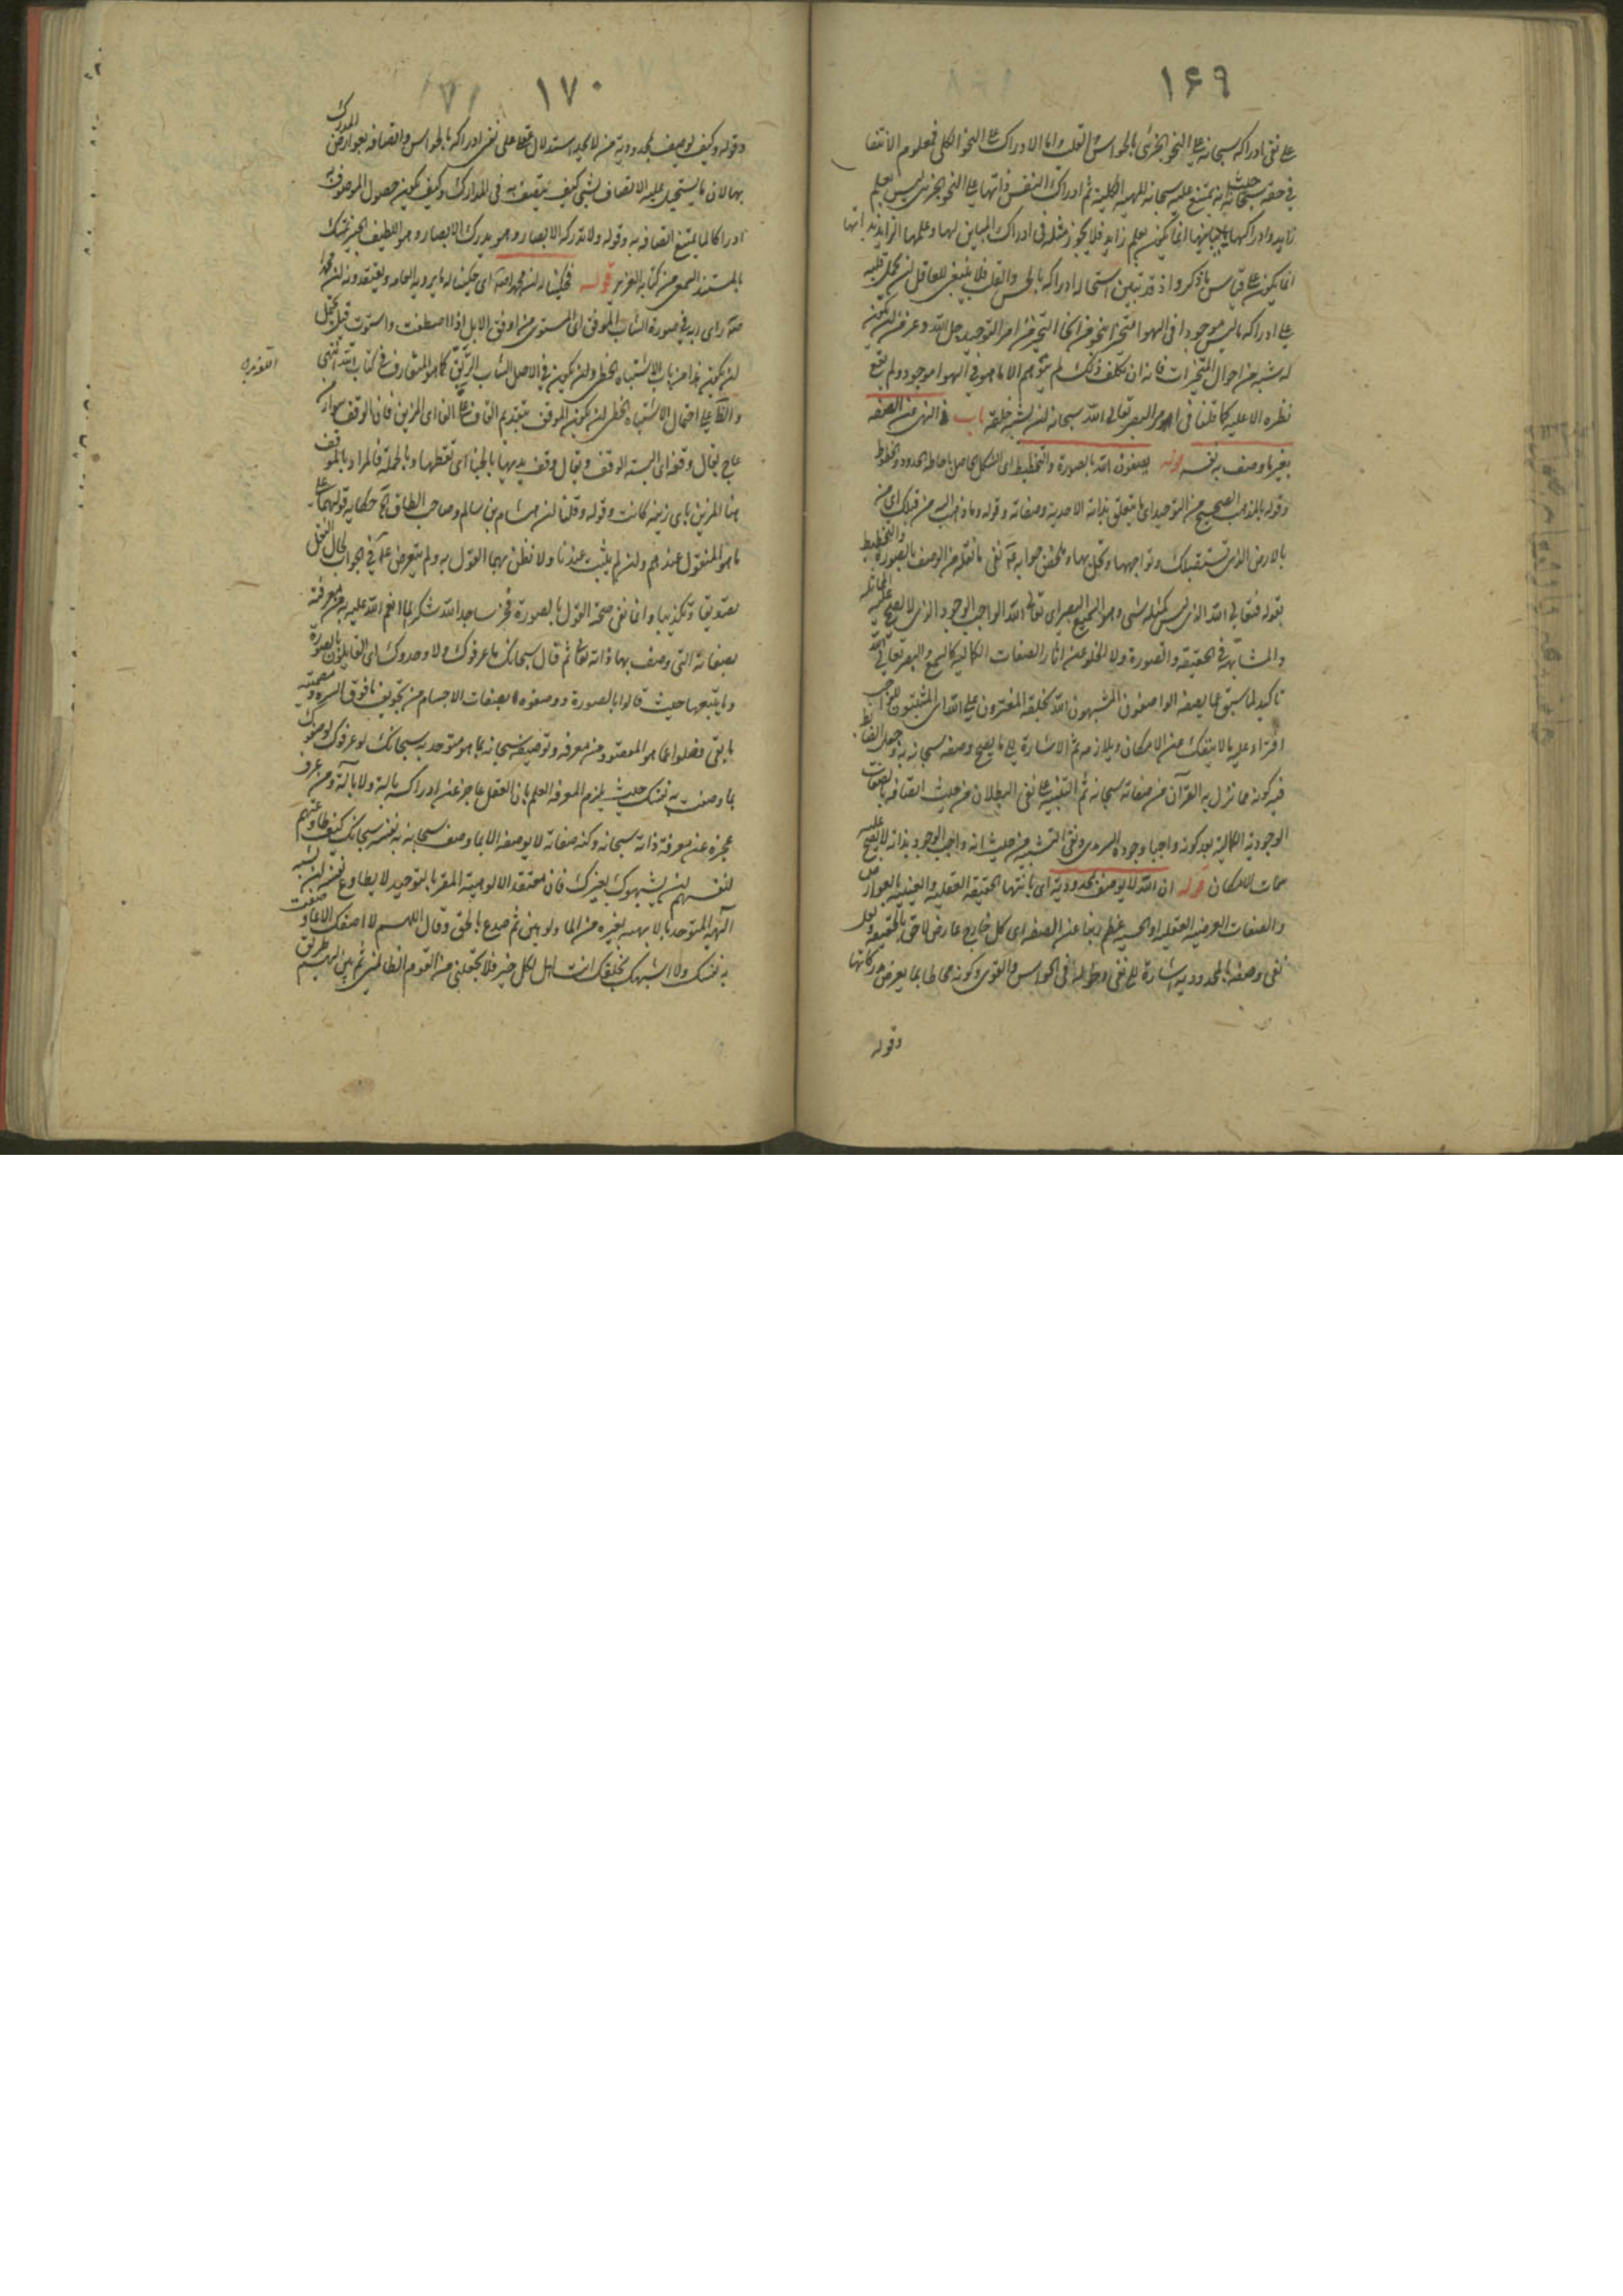 ۱۶۹
علی نفی ادراکه سبحانه علی النحو الجزئی بالحواس والقلب واما الادراک علی النحو الکلی فمعلوم الانتفا
فی حقه سبحانه حیث یمتنع علیه سبحانه المهیة الکلیة ثم ادراک النفس ذاتها علی النحو الجزئی لیس بعلم
زاید وادراکها انما یکون بعلم زاید فلا یجوز مثله فی ادراک المباین لها وعلمها الزاید بذاتها
انما یکون علی قیاس ما ذکر واذ قد تبین استحالة ادراکه بالحس والقلب فلا ینبغی للعاقل ان یحمل قلبه
علی ادراک ما لیس موجودا فی الهوا متحیزا بنحو من انحا التحیز من امر التوحید جل الله وعز من ان یکون
له شبه من احوال المتحیزات فانه ان تکلف ذلک لم یتوهم الا ما هو فی الهوا موجود ولم یقع
نظره الا علیه کما قلنا فی امر البصر تعالی الله سبحانه ان یشبه خلقه باب فی النهی عن الصفه
بغیر ما وصف به نفسه قوله یصفون الله بالصورة والتخطیط ای الشکل الحاصل باحاطة الحدود والخطوط
وقوله بالمذهب الصحیح من التوحید ای ما یتعلق بذاته الاحدیة وصفاته وقوله وما ذهب الیه من قبلک ای من
بالارض الذی تستقبلک وتواجهها وتحل بها وملخص جوابه نفی ما نقله من الوصف بالصورة والتخطیط
بقوله فتعالی الله الذی لیس کمثله شی وهو السمیع البصیر ای تعالی الله الواجب الوجود الذی لا یصح علیه المماثله
والمشابهة فی الحقیقة والصورة ولا الخلو عن اثار الصفات الکمالیه کالسمع والبصر تعالی الله
تاکید لما سبق عما یصفه الواصفون المشبهون الله بخلقه المفترون علی الله ای المثبتون للواجب
افتراء علیه ما لا ینفک من الامکان ویلازمه ثم الاشارة الی ما یصح وصفه سبحانه به وجعل الضابط
فیه کونه مما نزل به القرآن من صفاته سبحانه ثم التنبیه علی نفی البطلان من حیث اتصافه بالصفات
الوجودیة الکمالیة بعد کونه واجبا وجوده السرمدی ونفی التشبیه من حیث انه واجب الوجود بذاته لا یصح علیه
سمات الامکان قوله ان الله لا یوصف بمحدودیة ای بانتها الحقیقه العقلیه والعینیه بالعوارض
والصفات العرضیه العقلیه او الحسیه عظم ربنا عن الصفه ای کل خارج عارض لاحق بالحقیقه
نفی وصفه بالمحدودیة اشارة الی نفی دخوله فی الحواس والقوی وکونه محاطا بما یعرض مدرکاتها
وقوله
۱۷۰
وقوله وکیف یوصف بمحدودیة من لا یحد استدلال علی نفی ادراکه بالحواس واتصافه بعوارض المدرک
بها لان ما یستحیل علیه الاتصاف بشی کیف یتصف به فی المدارک وکیف یکون حصول الموصوف به
ادراکا لما یمتنع اتصافه به وقوله ولا تدرکه الابصار وهو یدرک الابصار وهو اللطیف الخبیر تمسک
بالمستند السمعی من کتابه العزیز قوله فحکینا له ان محمدا ای حکینا له ما یرویه العامه ویعتقدونه ان محمدا
رای ربه فی صورة الشاب الموفق ای المستوی من اوفق الابل اذا اصطفت واستوت قیل یحتمل
ان یکون هذا من باب الاشتباه الخطی وان یکون فی الاصل الشاب الریق کما هو المتعارف فی کتاب الله انتهی
والظ علی احتمال الاشتباه الخطی ان یکون الموقف بتقدیم القاف علی الفا ای المزین فان الوقف سوار من
عاج یقال وقفه ای البسه الوقف ویقال وقف یدیها بالحنا ای نقطها وبالجملة فالمراد بالموقف
هنا المزین بای زینه کانت وقوله وقلنا ان هشام بن سالم وصاحب الطاق حکایه قولهما علی
ما هو المنقول عندهم وان لم یثبت عندنا ولا نظن بهما القول به ولم یتعرض فی الجواب لحال النقل
تصدیقا وتکذیبا وانما نفی صحة القول بالصورة فخر ساجدا لله شکرا لما انعم الله علیه به من معرفته
بصفاته التی وصف بها ذاته تعالی ثم قال سبحانک ما عرفوک ولا وحدوک ای القایلون بالصورة
وما یتبعها حیث قالوا بالصورة ووصفوه بصفات الاجسام من تجویف ما فوق السرة ومصمتیه
ما بقی وضلوا عما هو المقصود من معرفه وتوصیفه سبحانه بما هو متوحد به سبحانک لو عرفوک لوصفوک
بما وصفت به نفسک حیث یلزم المعرفه العلم بان العقل عاجز عن ادراکه بالیة ولا بآلة ومن عرف
عجزه عن معرفة ذاته سبحانه وکنه صفاته لا یوصفه الا بما وصف سبحانه به نفسه سبحانک کیف طاوعتهم
انفسهم ان یشبهوک بغیرک فان معتقد الالوهیة المقر بالتوحید لا یطاوع نفسه ان یشبه
الهه المتوحد بالالهیة بغیره من المالوهین ثم صدع بالحق وقال اللهم لا اصفک الا بما وصفت
به نفسک ولا اشبهک بخلقک انت اهل لکل خیر فلا تجعلنی من القوم الظالمین ثم بین لهم طریق